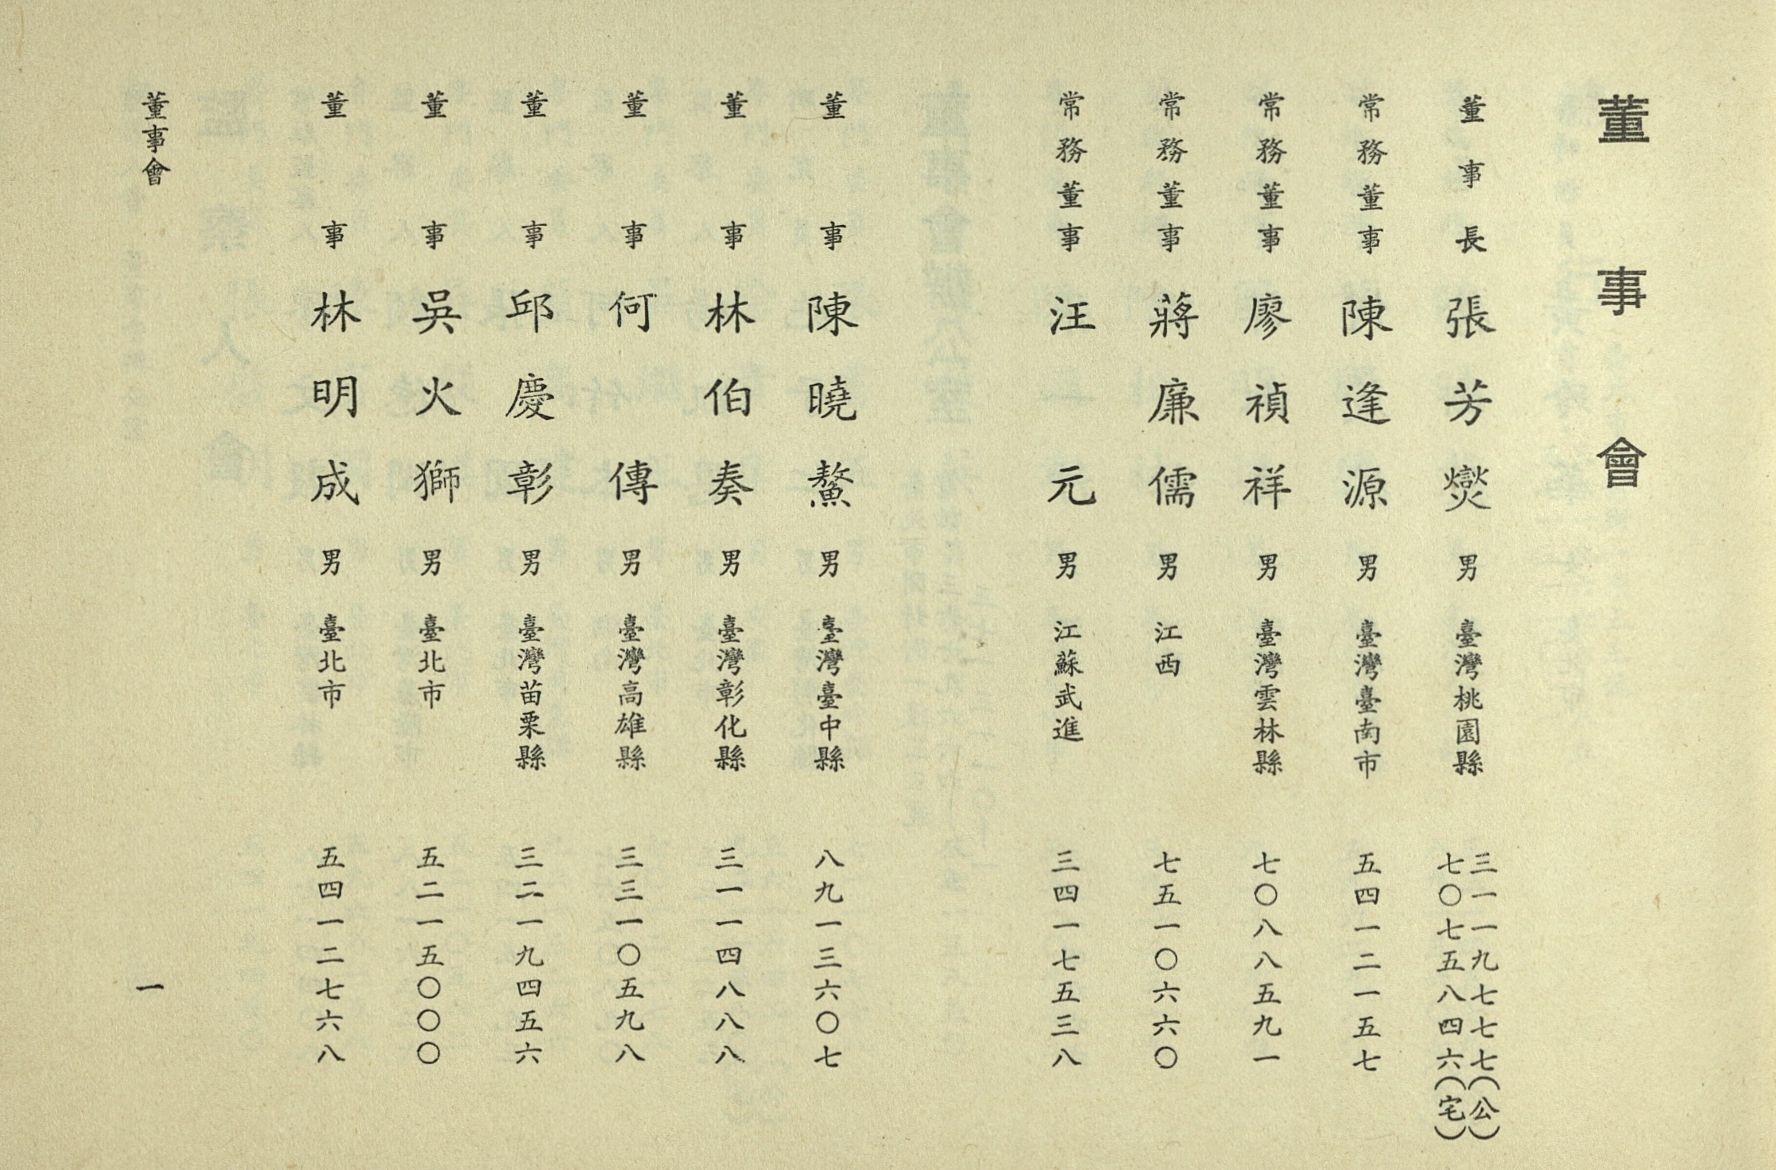 董事會
董事長 張芳燮 男 臺灣桃園縣 三一一九七七七(公)
七〇七五八四六(宅)
常務董事 陳逢源 男 臺灣臺南市 五四一二一五七
常務董事 廖禎祥 男 臺灣雲林縣 七〇八八五九一
常務董事 蔣廉儒 男 江西 七五一〇六六〇
常務董事 汪元 男 江蘇武進 三四一七五三八
董事 陳曉鰲 男 臺灣臺中縣 八九一三六〇七
董事 林伯奏 男 臺灣彰化縣 三一一四八八八
董事 何傳 男 臺灣高雄縣 三三一〇五九八
董事 邱慶彰 男 臺灣苗栗縣 三二一九四五六
董事 吳火獅 男 臺北市 五二一五〇〇〇
董事 林明成 男 臺北市 五四一二七六八
董事會 一